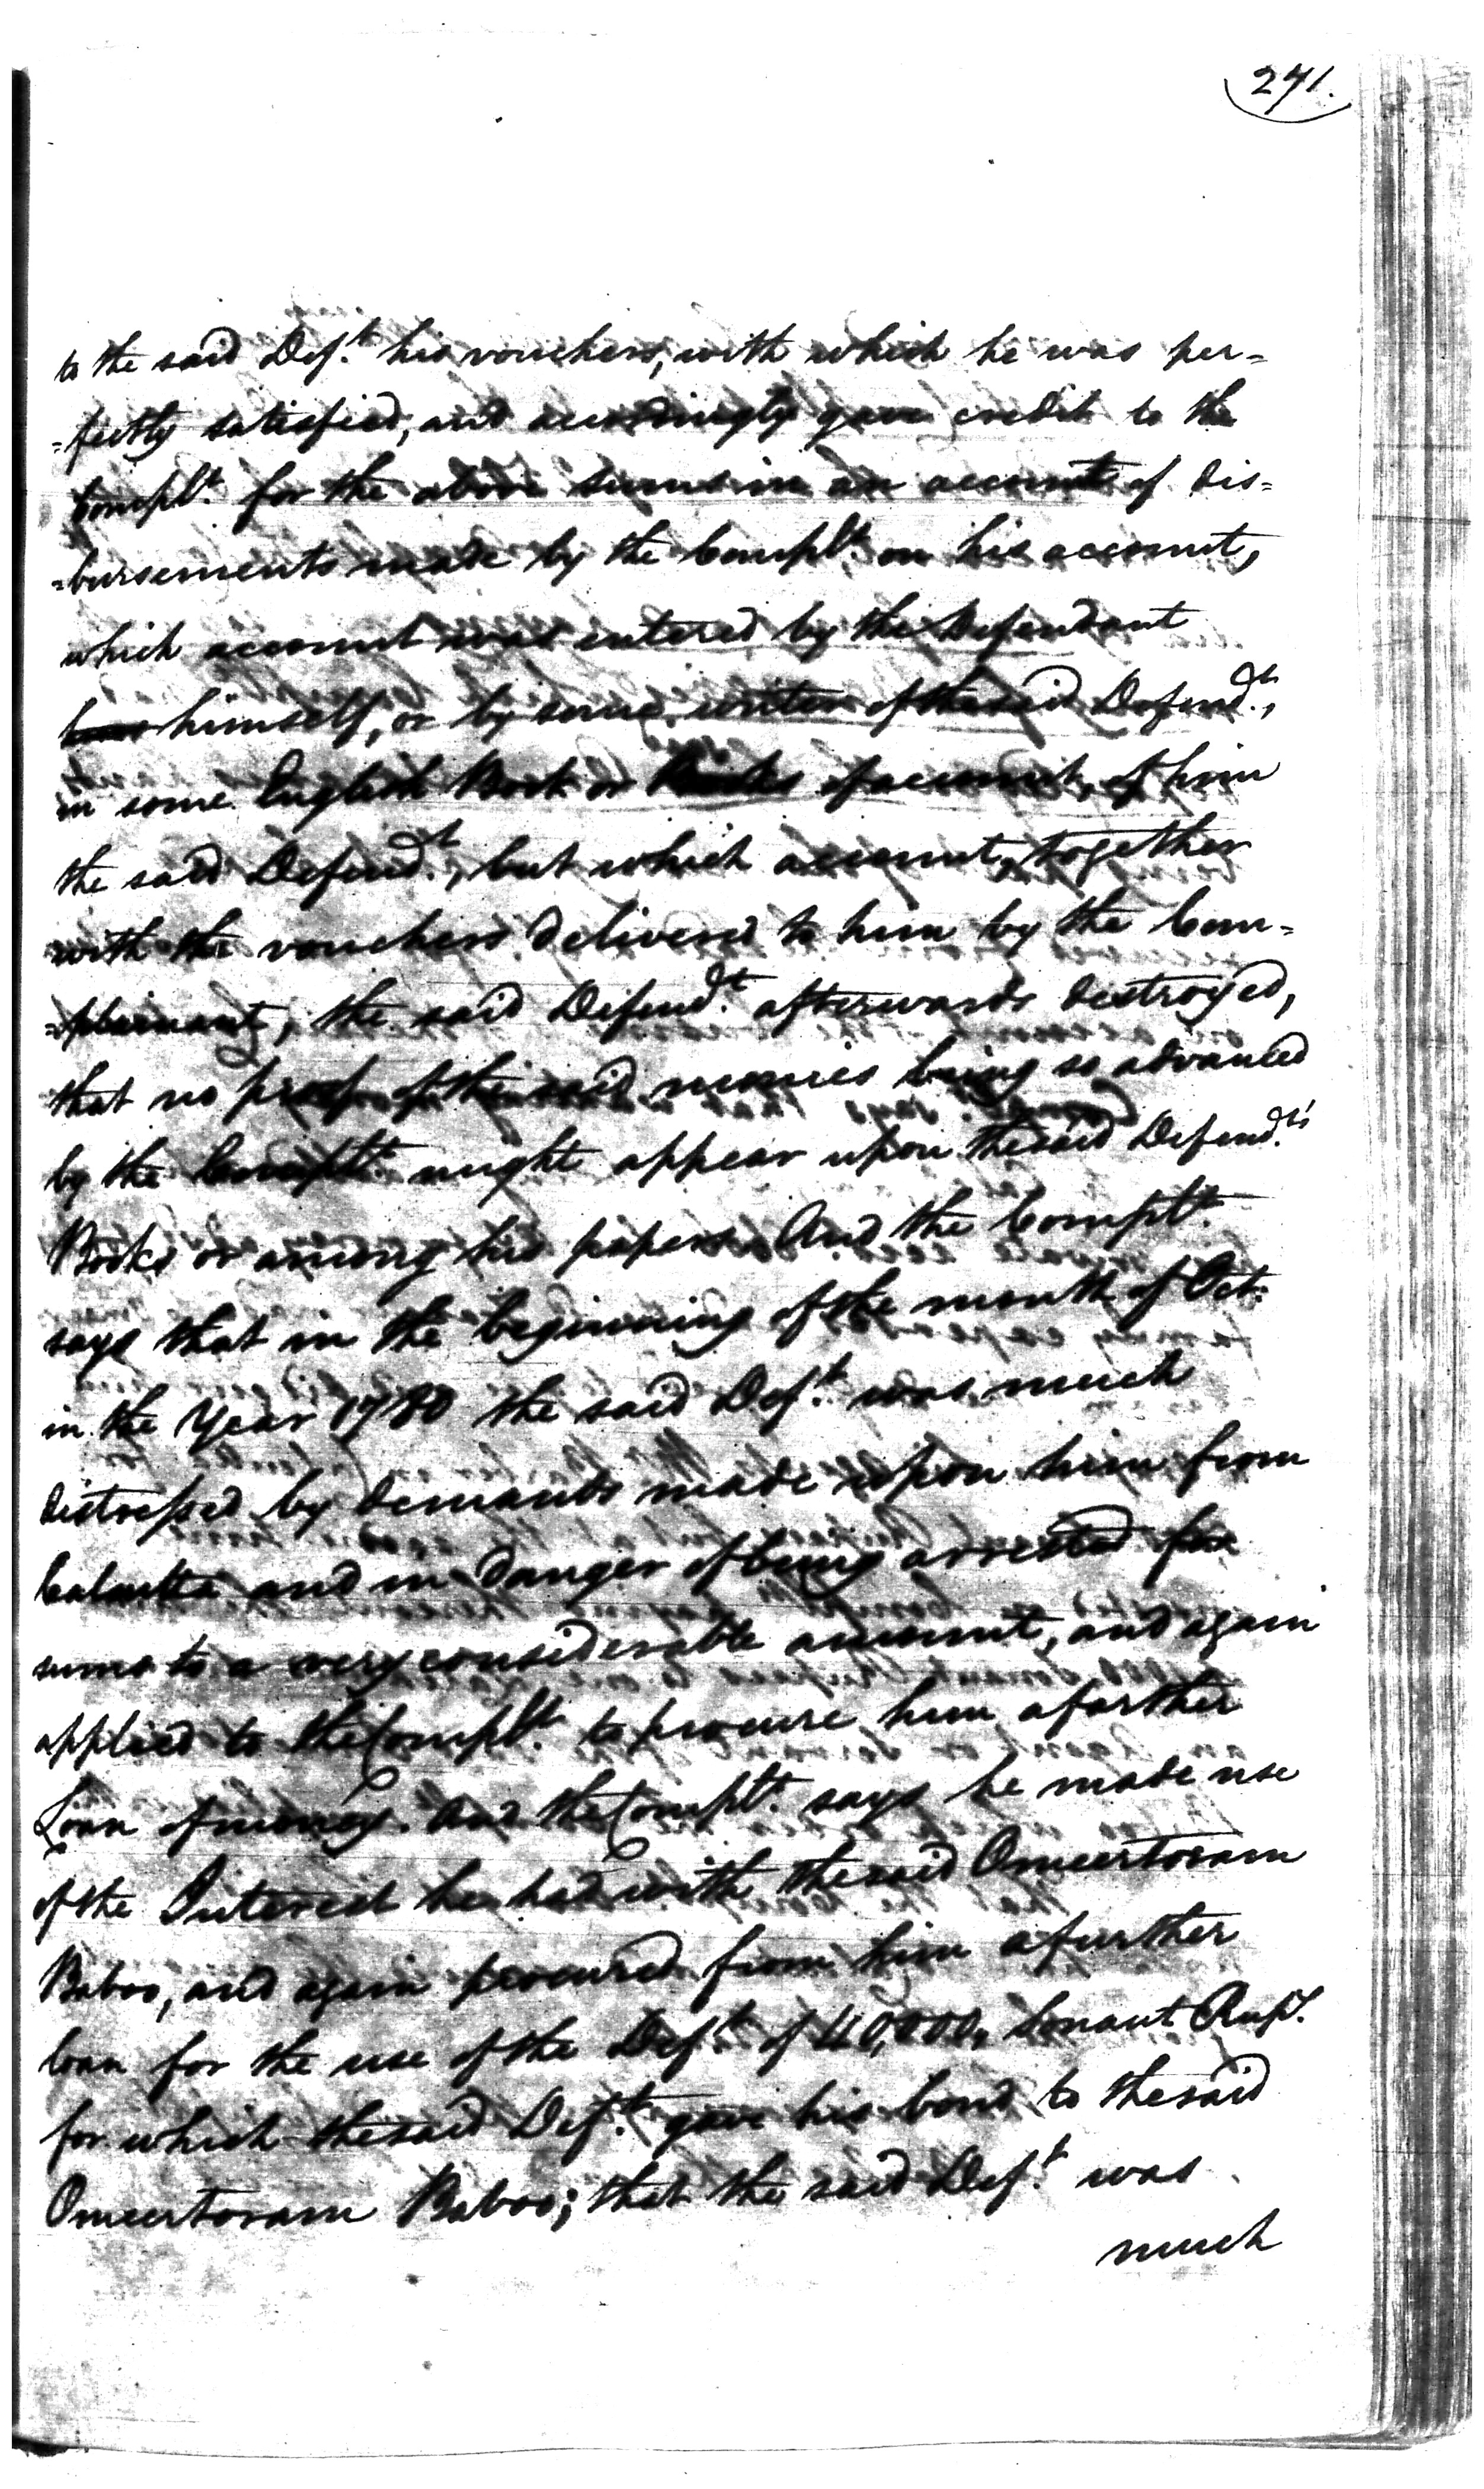 241.
to the said Def.t his vouchers, with which he was per=
=fectly satisfied, and accordingly gave credit to the
Compl.t for the above sums in an account of dis=
=bursements made by the Compl.t on his account,
which account was entered by the Defendant
himself, or by some writer of the said Defend.t,
in some English Book or Books of account, of him
the said Defend.t, but which account, together
with the vouchers delivered to him by the Com=
=plainant, the said Defend.t afterwards destroyed,
that no proof of the said monies being so advanced
by the Compl.t might appear upon the said Defend.ts'
Books or among his papers. And the Compl.t
says that in the beginning of the month of Oct:
in the Year 1780 the said Def.t was much
distressed by demands made upon him from
Calcutta and in danger of being arrested for
sums to a very considerable amount, and again
applied to the Compl.t to procure him a farther
Loan of money. And the Compl.t says he made use
of the Interest he had with the said Omeertoram
Baboo, and again procured from him a further
loan for the use of the Def.t of 40,000, Sonaut Rup.s
for which the said Def.t gave his bond to the said
Omeertoram Baboo; that the said Def.t was
much